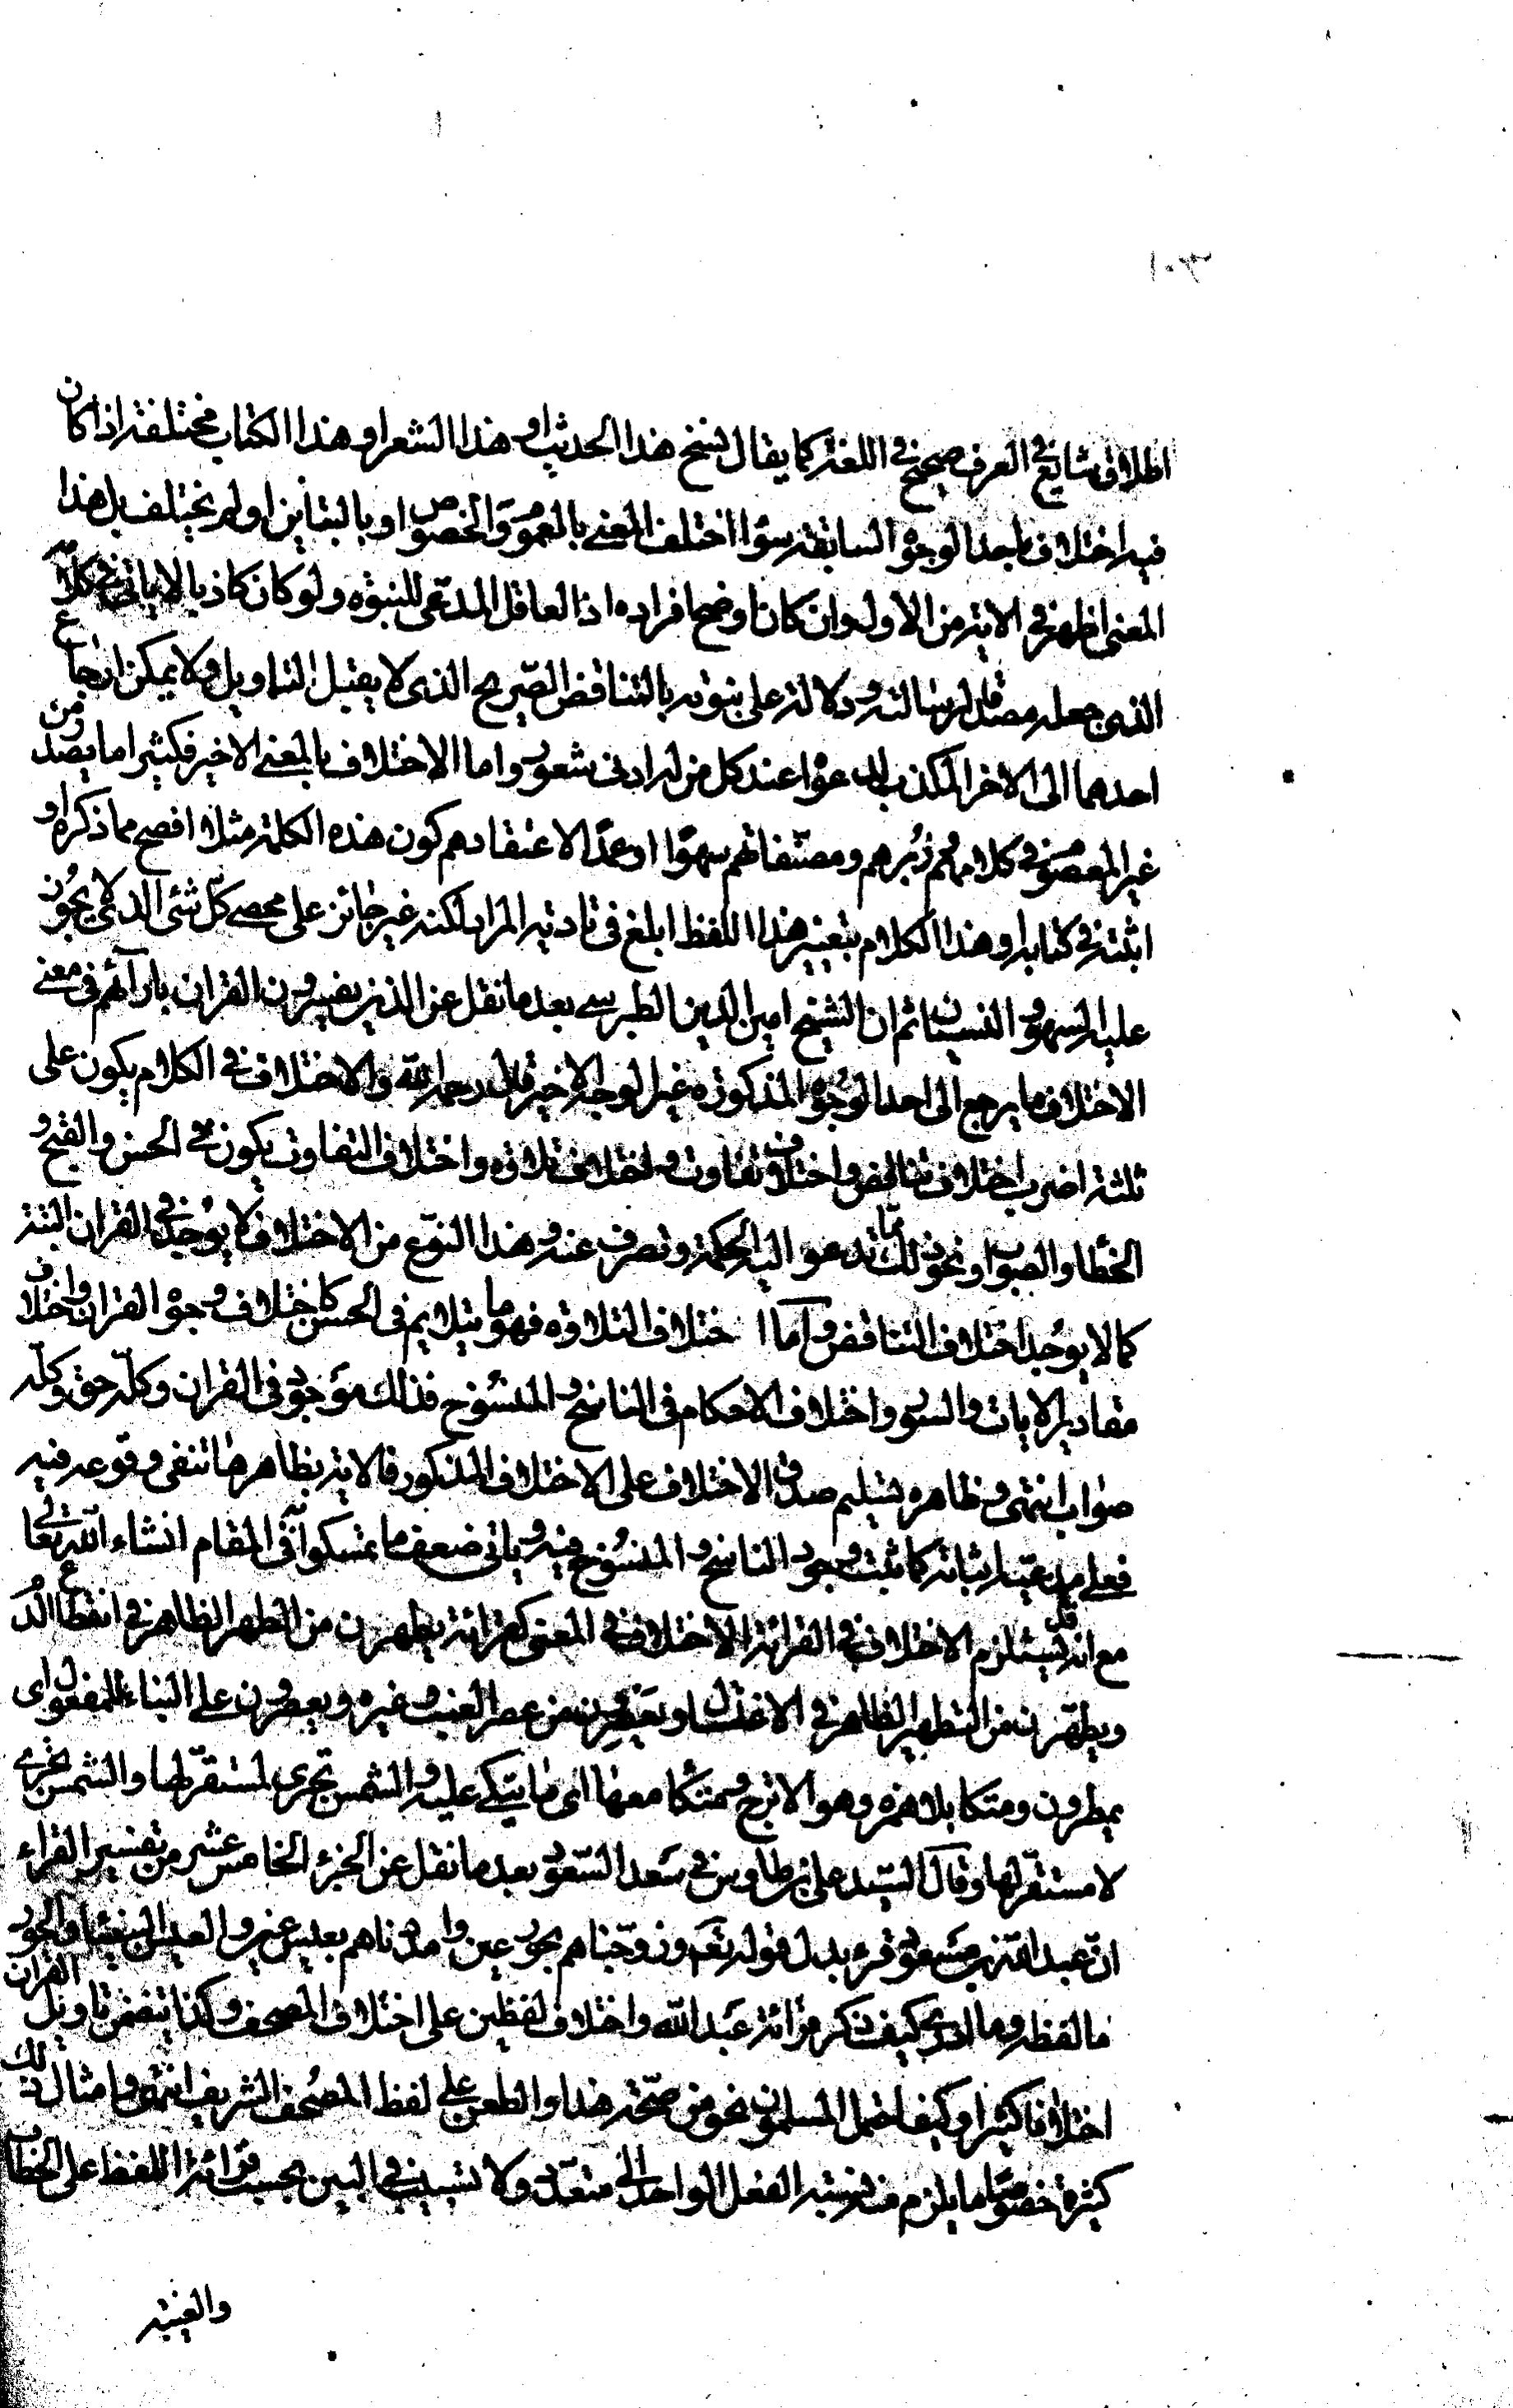 ١٠٣
اطلاق شايع فى العرف صحيح فى اللغة كما يقال نسخ هذا الحديث او هذا الشعر او هذا الكتاب مختلفة اذا كان
فيه اختلاف باحد الوجوه السابقة سوا اختلف المعنى بالعموم والخصوص او بالتباين او لم يختلف بل هذا
المعنى اظهر فى الاية من الاول وان كان اوضح افراده اذ العاقل المدعى للنبوه ولو كان كاذبا لا ياتى فى كلامه
الذى جعله مصدقا لرسالته ودلالة على نبوته بالتناقض الصريح الذى لا يقبل التاويل ولا يمكن ارجاع
احدهما الى الاخر المكذب لدعواه عند كل من له ادنى شعور واما الاختلاف بالمعنى الاخير فكثيرا ما يصدر من
غير المعصوم فى كلامهم وزبرهم ومصنفاتهم سهوا او عمدا لاعتقادهم كون هذه الكلمة مثلا افصح مما ذكره او
اثبته فى كتابه او هذا الكلام بتغيير هذا اللفظ ابلغ فى تادية المراد لكنه غير جائز على محصى كل شئ الذى لا يجوز
عليه السهو والنسيان ثم ان الشيخ امين الدين الطبرسى بعد ما نقل عن الذين يفسرون القران بارائهم فى معنى
الاختلاف ما يرجع الى احد الوجوه المذكوره غير الوجه الاخير قال رحمه الله والاختلاف فى الكلام يكون على
ثلثة اضرب اختلاف تناقض واختلاف تفاوت واختلاف تلاوه واختلاف التفاوت يكون فى الحسن والقبح و
الخطا والصواب ونحو ذلك مما تدعو اليه الحكمة وتصرف عنه وهذا النوع من الاختلاف لا يوجد فى القران البتة
كما لا يوجد اختلاف التناقض واما اختلاف التلاوه فهو ما يتلايم فى الحسن كاختلاف وجوه القران واختلاف
مقادير الايات والسور واختلاف الاحكام فى الناسخ والمنسوخ فذلك موجود فى القران وكله حق وكله
صواب انتهى وظاهره تسليم صدق الاختلاف على الاختلاف المذكور فالاية بظاهرها تنفى وقوعه فيه
فعلى مدعيه اثباته كما ثبت وجود الناسخ والمنسوخ فيه وياتى ضعف ما تمسكوا فى المقام انشاء الله تعالى
مع انه قد يستلزم الاختلاف فى القرائة الاختلاف فى المعنى كقرائة يطهرن من الطهر الظاهر فى انقطاع الدم
ويطهرن من التطهير الظاهر فى الاغتسال ويعصرون من عصر العنب وغيره ويعصرون على البناء للمفعول اى
يمطرون ومتكا بلا همزه وهو الاترج ومتكأ معها اى ما يتكى عليه والشمس تجرى لمستقر لها والشمس تجرى
لا مستقر لها وقال السيد على بن طاوس فى سعد السعود بعد ما نقل عن الجزء الخامس عشر من تفسير القراء
ان عبد الله بن مسعود قرء بدل قوله تعم وزوجناهم بحور عين وامددناهم بعيس عين والعيس البيضاء والحور
ما لفظه وما ادرى كيف ذكر قرائة عبد الله واختلاف لفظين على اختلاف المصحف وكذا يتضمن تاويل القران
اختلافا كثيرا وكيف احتمل المسلمون نحو من صحة هذا والطعن على لفظ المصحف الشريف انتهى وامثال ذلك
كثيرة خصوصا ما يلزم منه نسبة الفعل الواحد الى متعدد ولا تسبب فى البين بحسب قرائة اللفظ على الخطاب
والغيبة